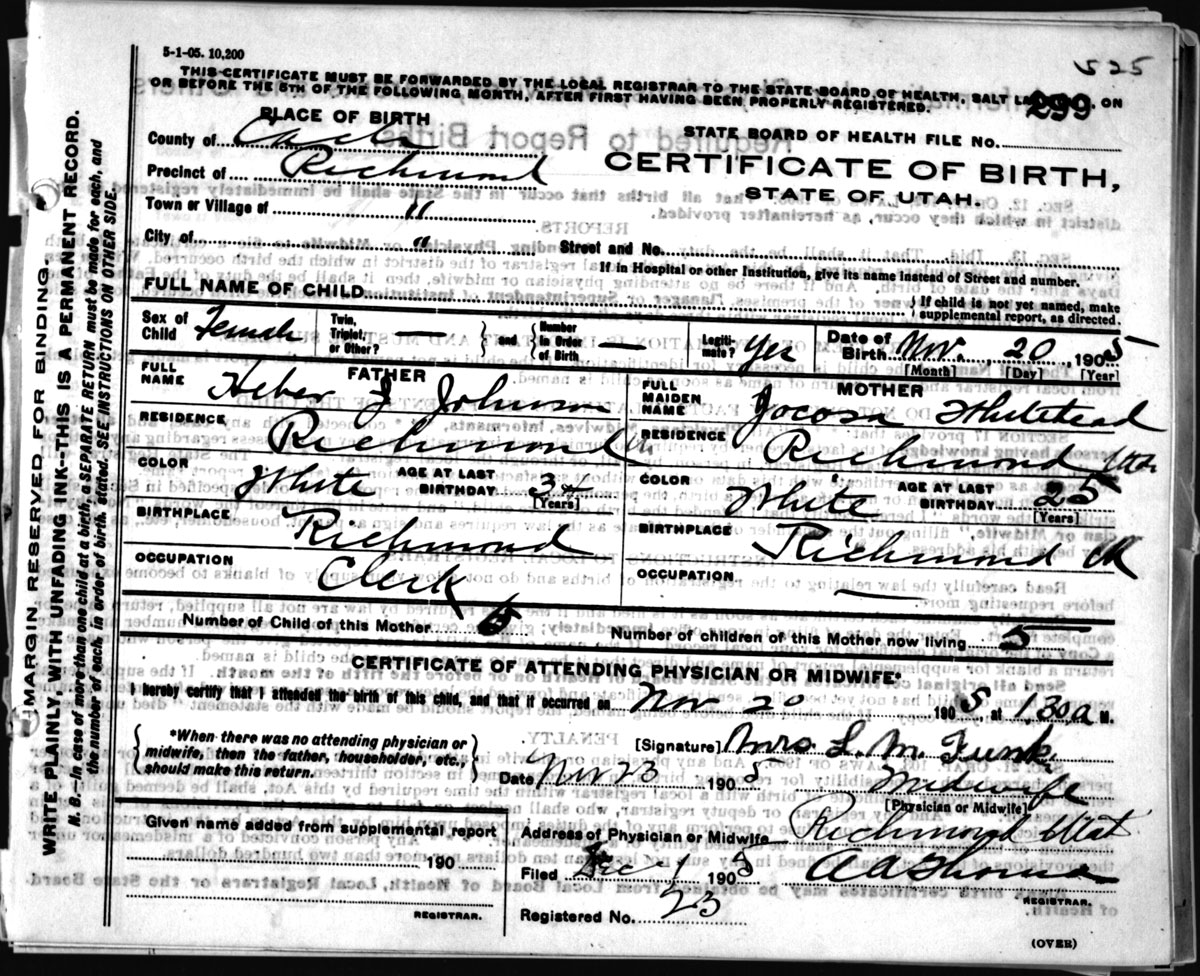 5-1-05. 10,200
525
THIS CERTIFICATE MUST BE FORWARDED BY THE LOCAL REGISTRAR TO THE STATE BOARD OF HEALTH, SALT ON
OR BEFORE THE 5TH OF THE FOLLOWING MONTH, AFTER FIRST HAVING BEEN PROPERLY REGISTERED.
299
PLACE OF BIRTH
STATE BOARD OF HEALTH FILE No.
County of Cache
CERTIFICATE OF BIRTH,
Precinct of Richmond
STATE OF UTAH.
Town or Village of "
City of "
Street and No.
If in Hospital or other Institution, give its name instead of Street and number.
FULL NAME OF CHILD
{If child is not yet named, make supplemental report, as directed.
Sex of Child Female
Twin, Triplet, or Other? —
{and} {Number in Order of Birth
Legitimate? Yes
Date of Birth Nov. 20, 1905
[Month] [Day] [Year]
FATHER
FULL NAME Heber J Johnson
RESIDENCE Richmond
COLOR White
AGE AT LAST BIRTHDAY 34
[Years]
BIRTHPLACE Richmond
OCCUPATION Clerk
MOTHER
FULL MAIDEN NAME Jocosa Whitehead
RESIDENCE Richmond Utah
COLOR White
AGE AT LAST BIRTHDAY 25
[Years]
BIRTHPLACE Richmond
OCCUPATION —
Number of Child of this Mother
Number of children of this Mother now living 5
CERTIFICATE OF ATTENDING PHYSICIAN OR MIDWIFE*
I hereby certify that I attended the birth of this child, and that it occurred on Nov 20 1905 at 1.30 a M.
{*When there was no attending physician or midwife, then the father, householder, etc., should make this return.}
[Signature] Mrs L. M. Funk
Date Nov 23 1905
Midwife
[Physician or Midwife]
Given name added from supplemental report
190
REGISTRAR.
Address of Physician or Midwife Richmond Utah
Filed Dec 1 1905
REGISTRAR.
Registered No. 23
(OVER)
MARGIN RESERVED FOR BINDING.
WRITE PLAINLY WITH UNFADING INK--THIS IS A PERMANENT RECORD.
N. B.—In case of more than one child at a birth, a SEPARATE RETURN must be made for each, and
the number of each, in order of birth, stated. SEE INSTRUCTIONS ON OTHER SIDE.